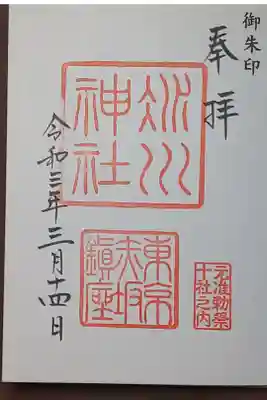 御朱印
奉拝
氷川
神社
元准勅祭
十社之内
東京
赤坂
鎮座
令和三年三月十四日